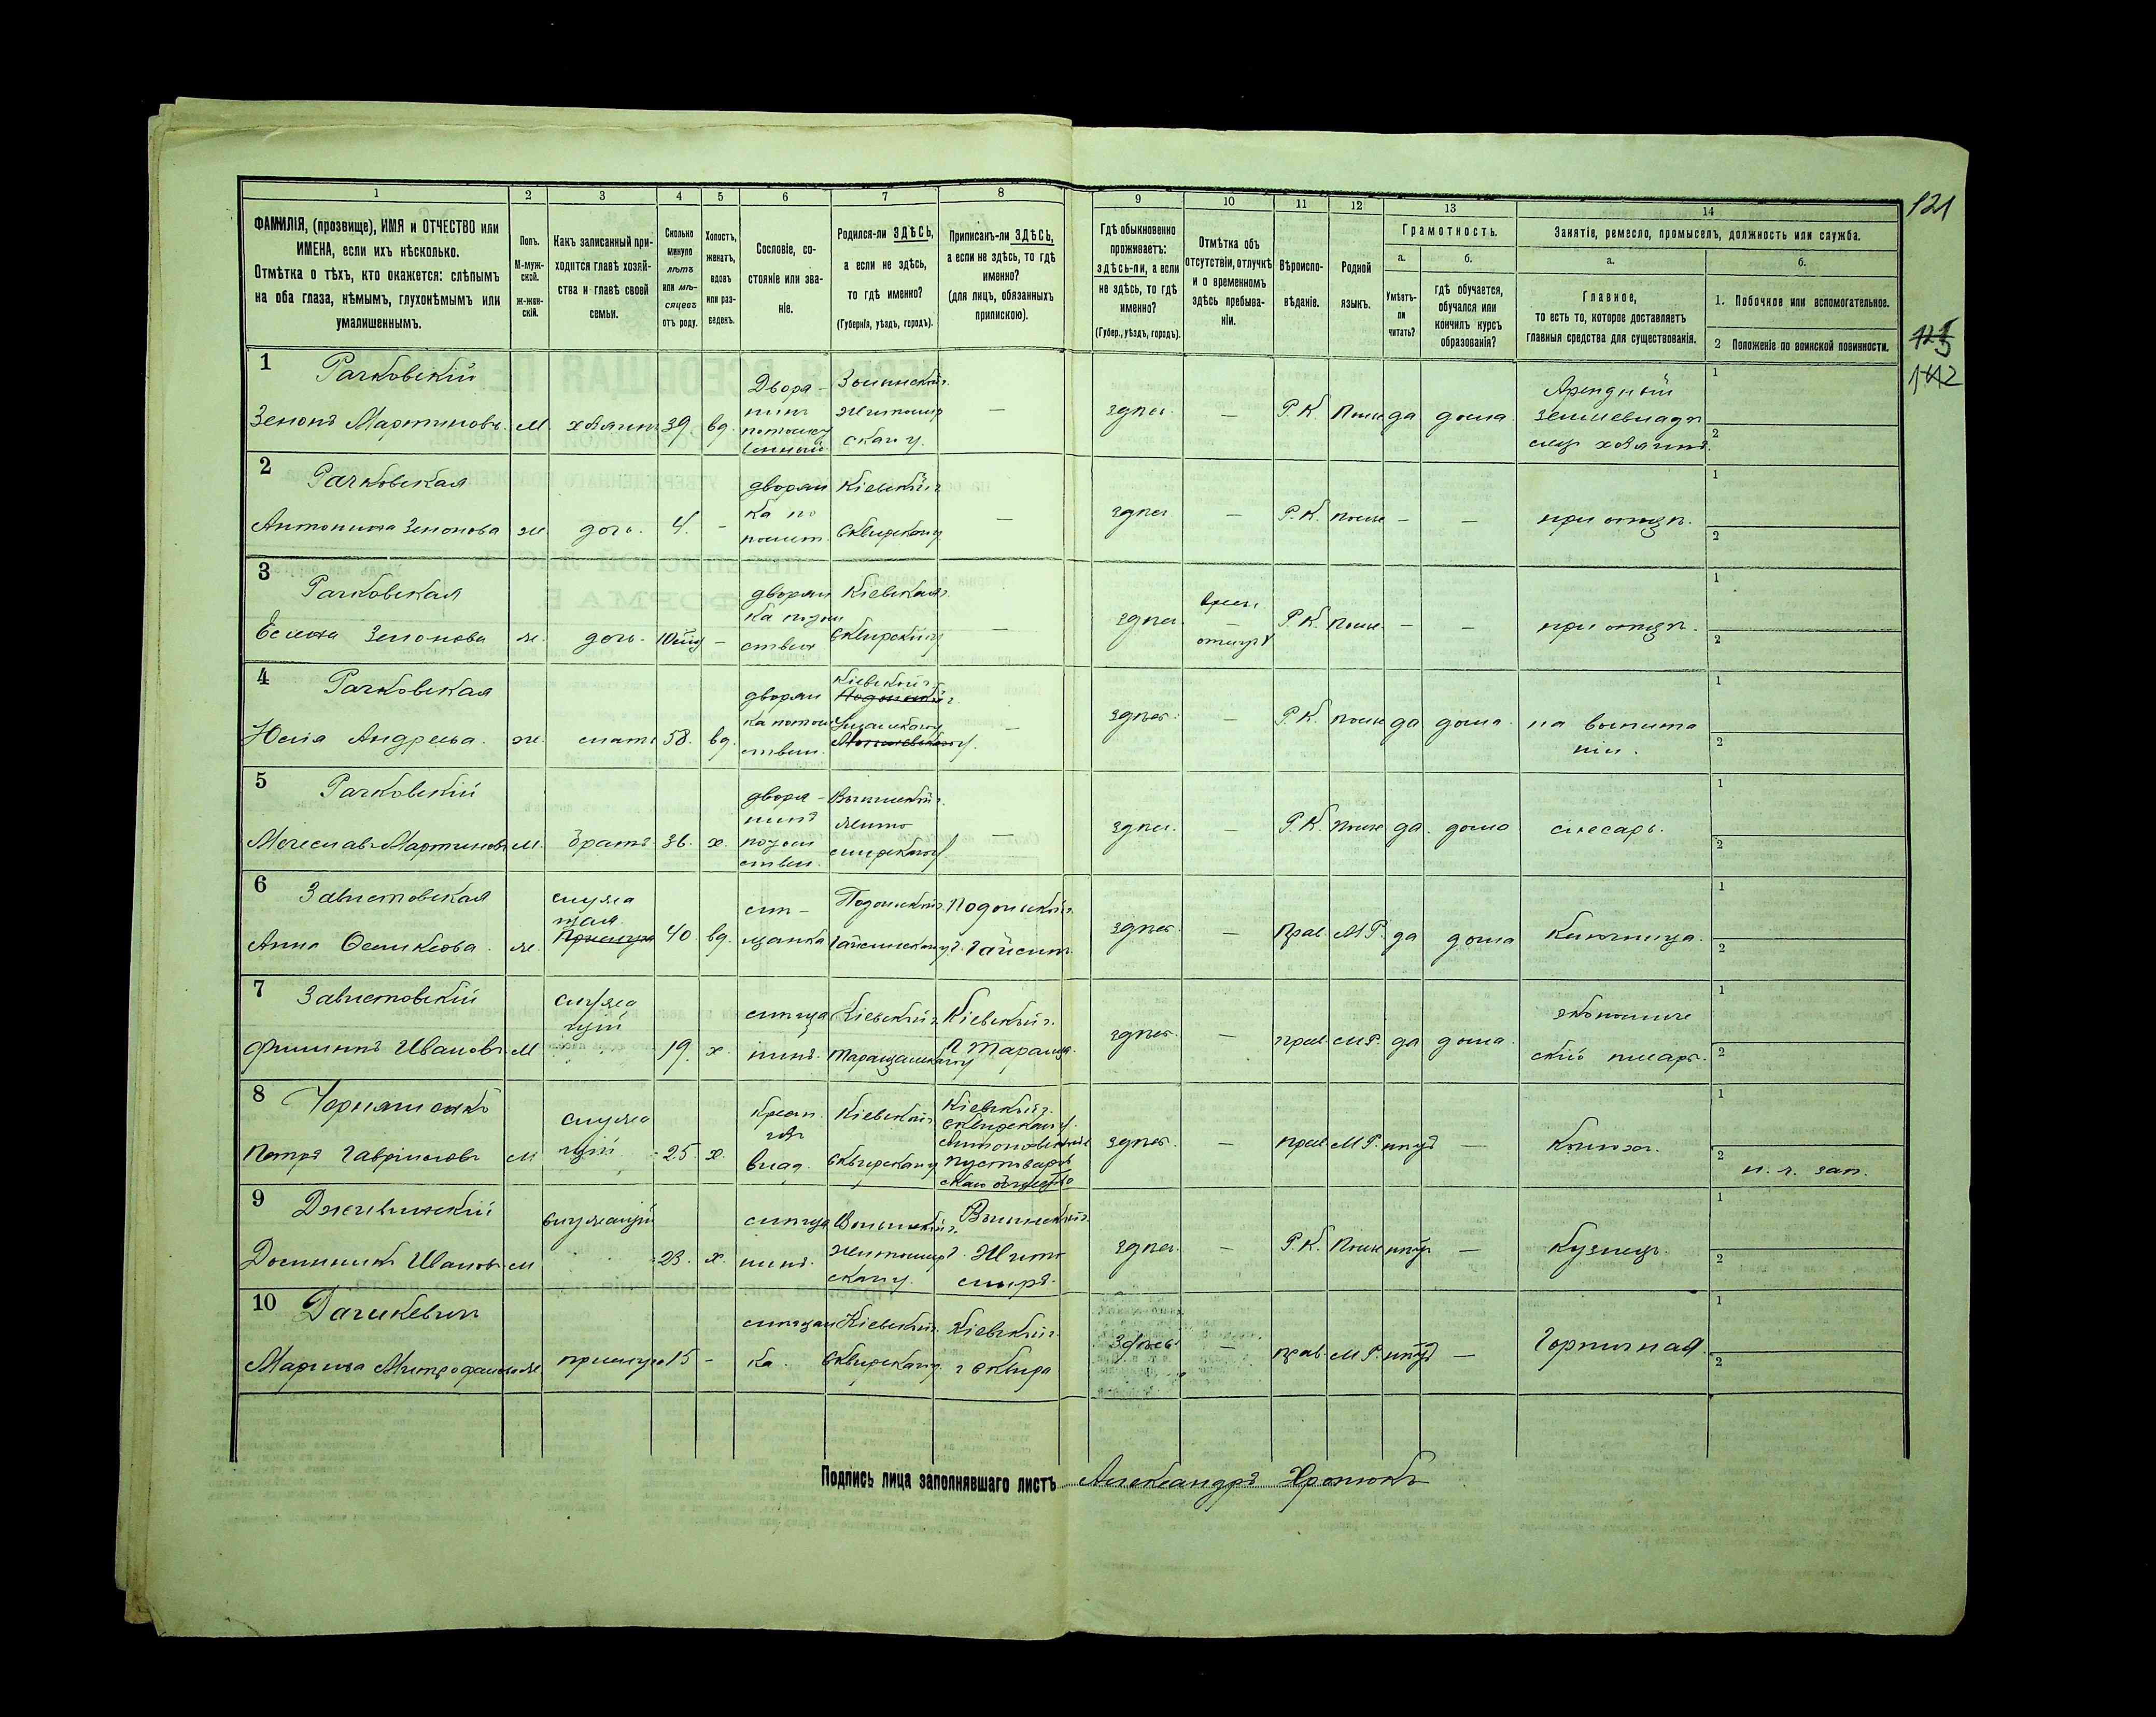 121
123
142
1 2 3 4 5 6 7 8 9 10 11 12 13 14
ФАМИЛІЯ, (прозвище), ИМЯ и ОТЧЕСТВО или
ИМЕНА, если ихъ нѣсколько.
Отмѣтка о тѣхъ, кто окажется: слѣпымъ
на оба глаза, нѣмымъ, глухонѣмымъ или
умалишеннымъ.
Полъ.
М-муж-
ской.
ж-жен-
скій.
Какъ записанный при-
ходится главѣ хозяй-
ства и главѣ своей
семьи.
Сколько
минуло
лѣтъ
или мѣ-
сяцевъ
отъ роду.
Холостъ,
женатъ,
вдовъ
или раз-
веденъ.
Сословіе, со-
стояніе или зва-
ніе.
Родился-ли ЗДѢСЬ,
а если не здѣсь,
то гдѣ именно?
(Губернія, уѣздъ, городъ).
Приписанъ-ли ЗДѢСЬ,
а если не здѣсь, то гдѣ
именно?
(для лицъ, обязанныхъ
припискою).
Гдѣ обыкновенно
проживаетъ:
здѣсь-ли, а если
не здѣсь, то гдѣ
именно?
(Губер., уѣздъ, городъ).
Отмѣтка объ
отсутствіи, отлучкѣ
и о временномъ
здѣсь пребыва-
ніи.
Вѣроиспо-
вѣданіе.
Родной
языкъ.
Грамотность.
а.
Умѣетъ-
ли
читать?
б.
гдѣ обучается,
обучался или
кончилъ курсъ
образованія?
Занятіе, ремесло, промыселъ, должность или служба.
а.
Главное,
то есть то, которое доставляетъ
главныя средства для существованія.
б.
1. Побочное или вспомогательное.
2 Положеніе по воинской повинности.
1 Рачковскій
Зенонъ Мартиновъ. м. хозяинъ 39 вд.
Дворя-
нинъ
потомст
венный
Волынской г.
житомир
скаго у.
— здѣсь. — Р.К. Польс да дома
Арендный
землевладѣ
лец хозяинъ.
1
2
2 Рачковская
Антонина Зенонова ж. дочь. 4. —
дворян
ка по
томст.
Кіевской г.
Сквирскаго у
— здѣсь — Р.К. польс — — при отцѣ.
1
2
3 Рачковская
Зенонова ж. дочь. —
дворян
ка потом
ствен
Кіевской г.
Сквирскаго у
— здѣсь
Врем.
отлуч
Р.К. Польс. — — при отцѣ.
1
2
4 Рачковская
Юлія Андреева. ж. мать 58. вд.
дворян
ка потом
ствен.
Кіевской г.
Подольской г.
Уманскаго у
— здѣсь. — Р.К. польс да дома. на воспита
ніи.
1
2
5 Рачковскій
Мечеславъ Мартиновъ м. братъ 36. х.
дворя-
нинъ
потом
ствен.
Волынской г.
Жито
мирскаго у
— здѣсь. — Р.К. польс да. дома слесарь.
1
2
6 Завистовская
Анна ж.
служа
щая
Прислуга
40 вд.
мѣ-
щанка
Подольской г.
Гайсинскаго у.
Подольской г.
г. Гайсинъ.
здѣсь. — Прав М.Р. да дома Ключница.
1
2
7 Завистовскій
Филиппъ Ивановъ. М
служа
щій
19. х.
мѣща
нинъ.
Кіевской г.
Таращанскаго у
Кіевской г.
г. Тараща.
здѣсь. — прав М.Р. да дома.
экономиче
скій писарь.
1
2
8 Чернященко
Петръ Гавріиловъ м
служа
щій
25. х.
Крест.
влад.
Кіевской г.
Сквирскаго у
Кіевской г.
Сквирскаго у.
Антоновской
Пустоваров
скаго общества
здѣсь. — прав М.Р. нѣтъ — Конюх.
1
2
н. г. зап.
9
Доминикъ Ивановъ м служащій 23. х.
мѣща
нинъ.
Волынской г.
житомир
скаго у.
Волынской г.
г. Жито
миръ.
здѣсь. — Р.К. Польс нѣтъ — Кузнецъ.
1
2
10 Дашкевич
Марина Митрофанова ж. прислуга 15 —
мѣщан
ка.
Кіевской г.
Сквирскаго у.
Кіевской г.
г Сквира
здѣсь — прав. М.Р. нѣтъ — Горничная.
1
2
Подпись лица заполнявшаго листъ Александръ